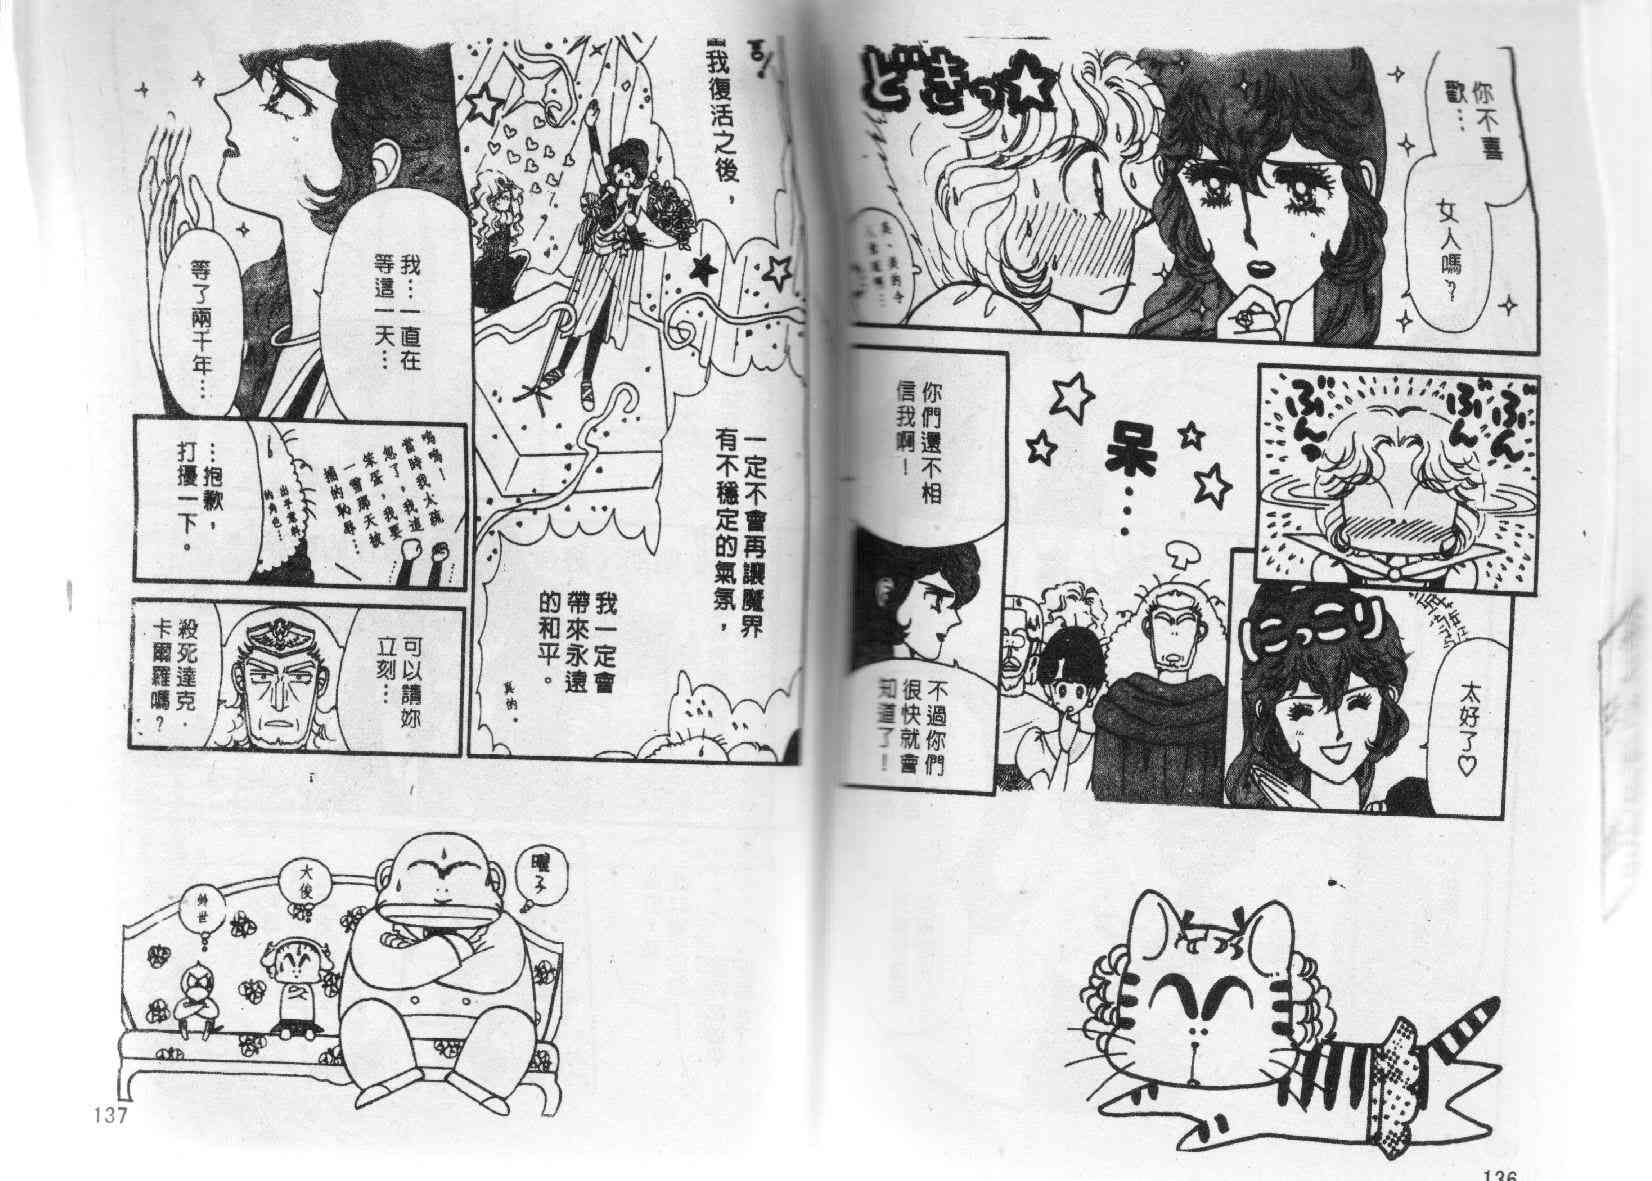 你不喜
歡…
女人嗎？
どきっ
你們還不相
信我啊！
呆……
ぶん
ぶん
ぶんっ
不過你們
很快就會
知道了！
にっこり
太好了♡
136
我復活之後，
一定不會再讓魔界
有不穩定的氣氛，
我一定會
帶來永遠
的和平。
真的。
我…一直在
等這一天…
等了兩千年…
嗚嗚！
當時我太疏
忽了，我這
笨蛋，我要
一雪那天被
捕的恥辱…
出乎意料
的角色…
…抱歉，
打擾一下。
可以請妳
立刻…
殺死達克．
卡爾羅嗎？
曜子
大俊
鈴世
137